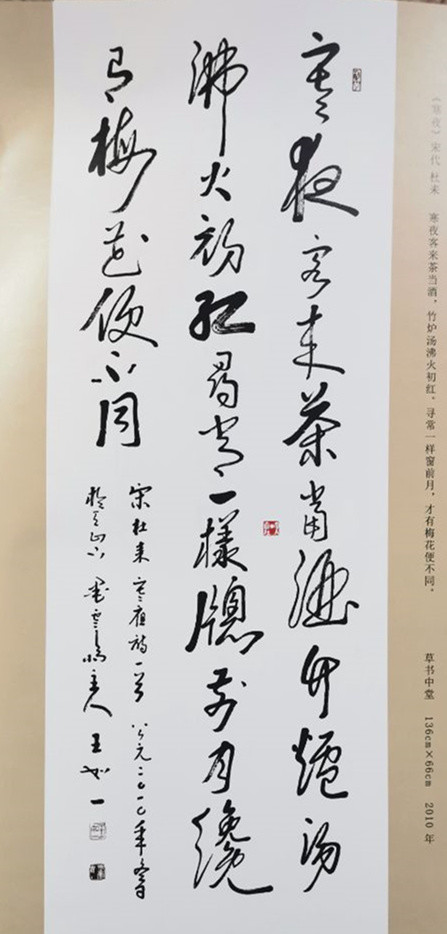 《寒夜》宋代 杜来 寒夜客来茶当酒，竹炉汤沸火初红。寻常一样窗前月，才有梅花便不同。 草书中堂 136cm×66cm 2010年
寒夜客来茶當酒竹爐湯
沸火初红尋常一樣牕前月纔
有梅花便不同
宋杜来寒夜詩一首 公元二〇一〇年
主人 王如一